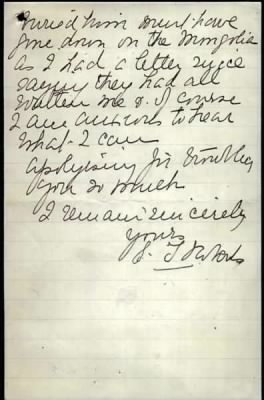 buried him must have
gone down on the Mongolia
as I had a letter since
saying they had all
written me & of course
I am anxious to hear
what I can
apolgising for troubling
you so much
I remain sincerely
yours
S. T. Roberts